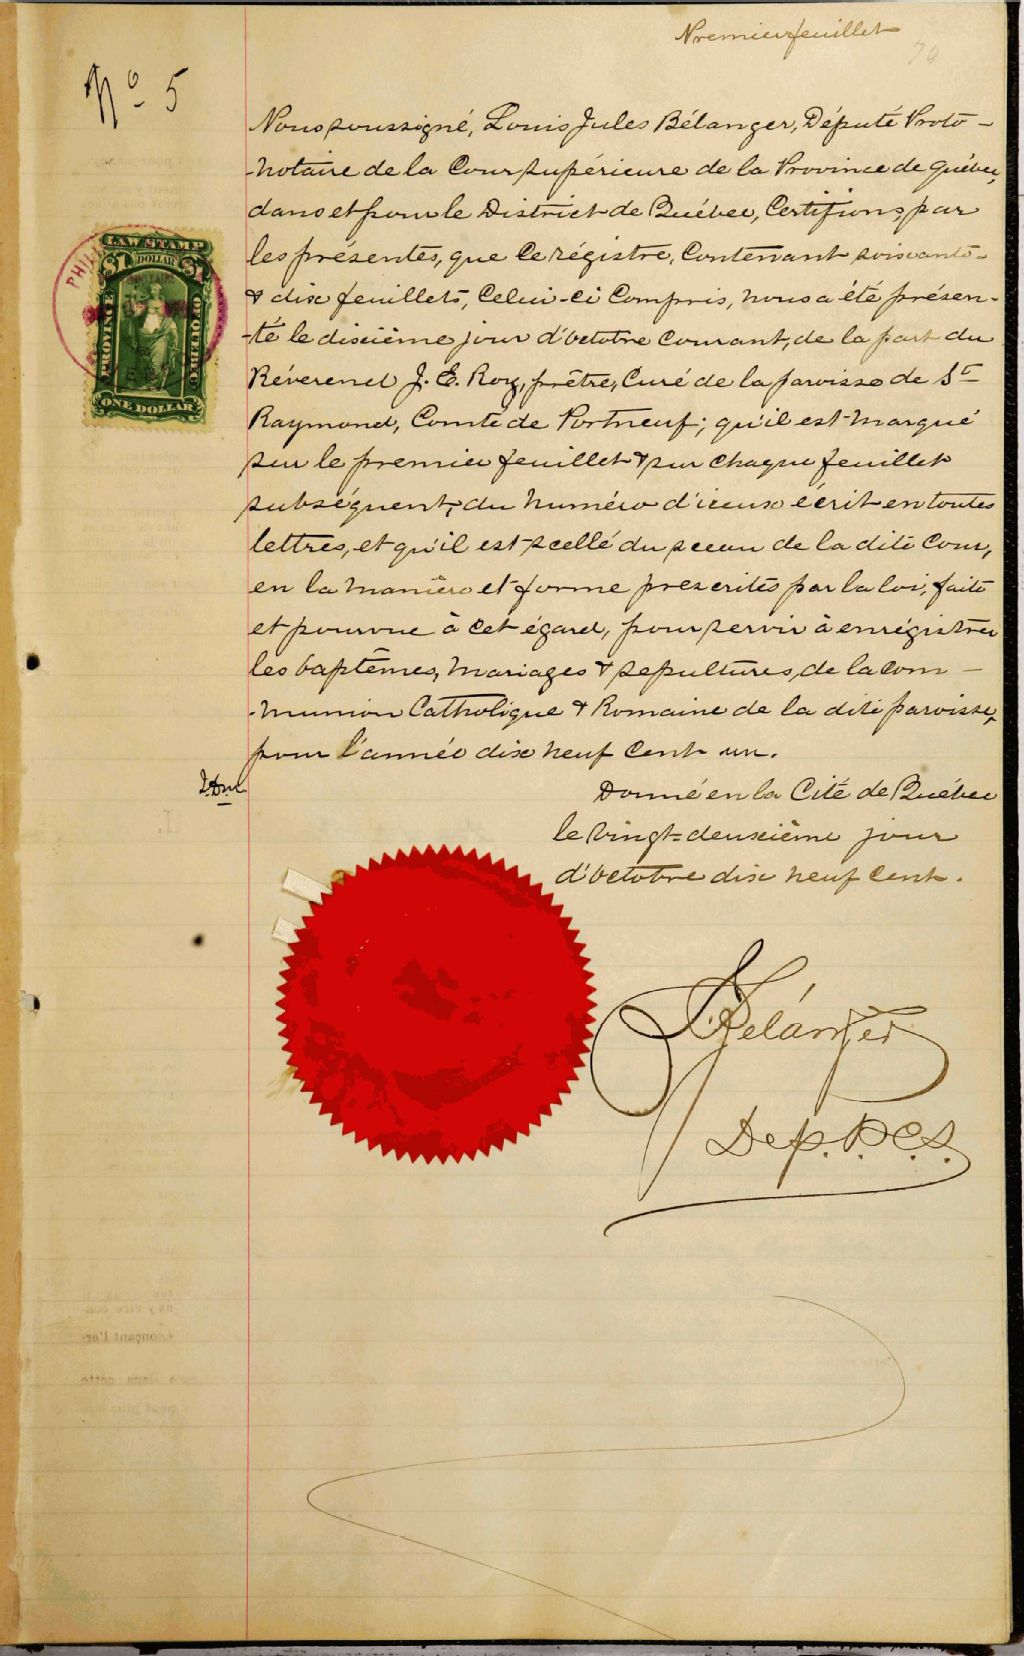 Premier feuillet
70
No 5
Nous soussigné, Louis Jules Bélanger, Député Proto-
-notaire de la Cour supérieure de la Province de Québec,
dans et pour le District de Québec, Certifions, par
les présentes, que ce régistre, contenant soixante-
& dix feuillets, celui-ci compris, nous a été présen-
-té le dixième jour d'octobre courant, de la part du
Réverend J. E. Roy, prêtre, Curé de la paroisse de St
Raymond, Comté de Portneuf; qu'il est marqué
sur le premier feuillet & sur chaque feuillet
subséquent, du numéro d'iceux écrit en toutes
lettres, et qu'il est scellé du sceau de la dite Cour,
en la manière et forme prescrites par la loi, faite
et pourvue à cet égard, pour servir à enrégistrer
les baptêmes, mariages & sepultures, de la com-
-munion Catholique & Romaine de la dite paroisse,
pour l'année dix neuf cent un.
Donné en la Cité de Québec
le vingt-deuxième jour
d'octobre dix neuf cent.
LJBélanger
Dep. P.C.S.
LAW STAMP
$1 DOLLAR $1
PROVINCE
OF QUEBEC
ONE DOLLAR